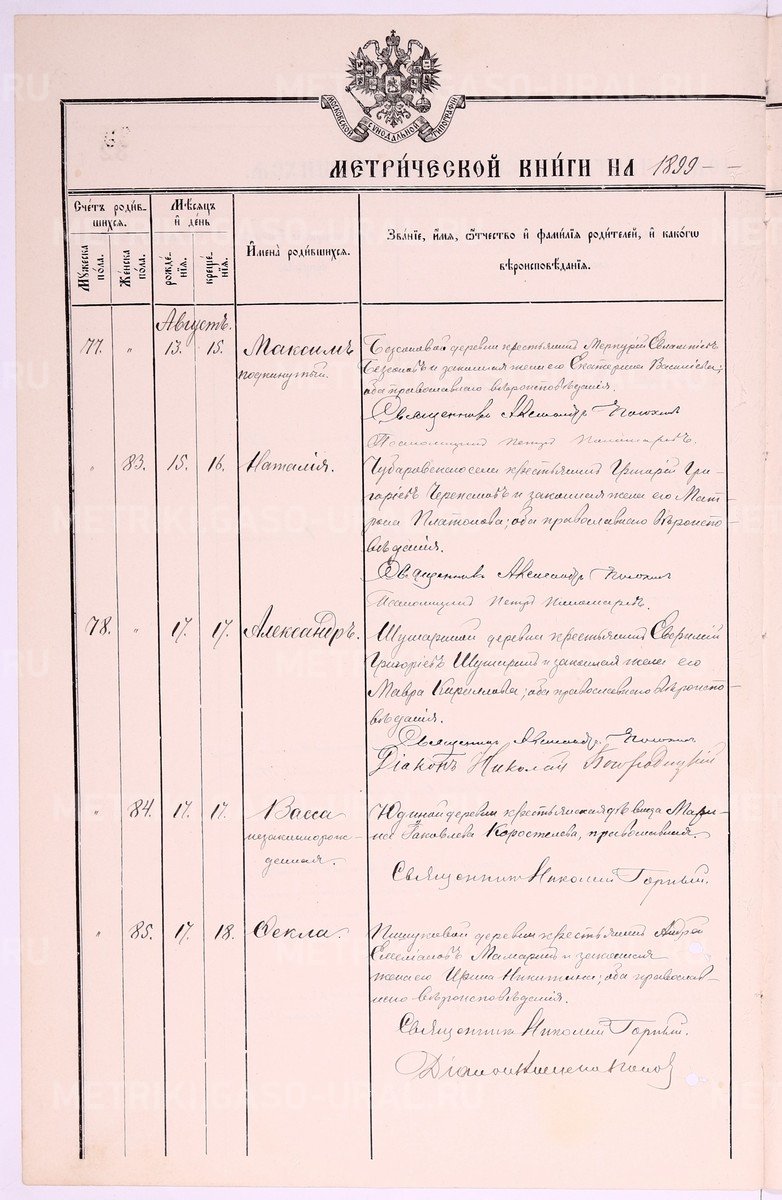 МОСКОВСКОЙ СѴНОДАЛЬНОЙ ТИПОГРАФІИ
МЕТРИ́ЧЕСКОЙ КНИ́ГИ НА 1899
Сче́тъ роди́в-
шихся.
Мꙋжеска
по́ла.
Же́нска
по́ла.
Мѣ́сяцъ
и҆ де́нь
рожде-
нїя.
креще-
нїя.
И҆мена̀ роди́вшихся.
Зва́нїе, и҆́мя, ѻ҆́тчество и҆ фами́лїя роди́телей, и҆ како́гѡ
вѣроисповѣ́данїя.
Августъ.
77. " 13. 15. Максимъ
подкинутый.
деревни крестьянинъ Меркурій Евлампіевъ
и законная жена его Екатерина Васильева;
оба православнаго вѣроисповѣданія.
Священникъ Александръ
Псаломщикъ Петръ Пономаревъ.
" 83. 15. 16. Наталія.
Чубаровскаго села крестьянинъ Григорій Гри-
горіевъ и законная жена его Мат-
рона Платонова; оба православнаго вѣроиспо-
вѣданія.
Священникъ Александръ
Псаломщикъ Петръ Пономаревъ.
78. " 17. 17. Александръ.
деревни крестьянинъ
Григоріевъ и законная жена его
Мавра Кириллова; оба православнаго вѣроиспо-
вѣданія.
Священникъ Александръ
Діаконъ Николай Богородицкій
" 84. 17. 17. Васса
незаконнорож-
денная.
Юдиной деревни крестьянская дѣвица Мари-
на Іаковлева Коростелева, православная.
Священникъ Николай Горный.
" 85. 17. 18. Ѳекла.
деревни крестьянинъ Андрей
Емеліановъ и законная
жена его Ирина Никитина; оба православ-
наго вѣроисповѣданія.
Священникъ Николай Горный.
Діаконъ Попов